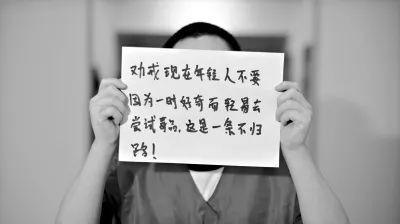 劝戒现在年轻人不要
因为一时好奇而轻易去
尝试毒品,这是一条不归
路!